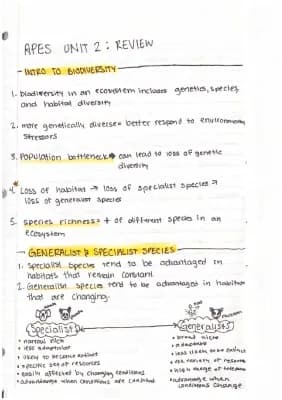 APES UNIT 2: REVIEW
INTRO TO BIODIVERSITY
1. biodiversity in an ecosystem includes genetics, species,
and habitat diversity
2. more genetically diverse = better respond to environmental
stressors
3. POPULATION bottleneck → can lead to loss of genetic
diversity
4. Loss of habitat → loss of specialist species →
loss of generalist species
5. species richness = # of different species in an
ecosystem
GENERALIST & SPECIALIST SPECIES
1. Specialist species tend to be advantaged in
habitats that remain constant
2. Generalist species tend to be advantaged in habitats
that are changing.
Specialist
Generalists
• narrow niche
• broad niche
• less adaptable
• adaptable
• likely to become extinct
• less likely to be extinct
• specific set of resources
• easily affected by changing conditions
• high range of tolerance
• advantage when conditions are constant
• advantage when
conditions change